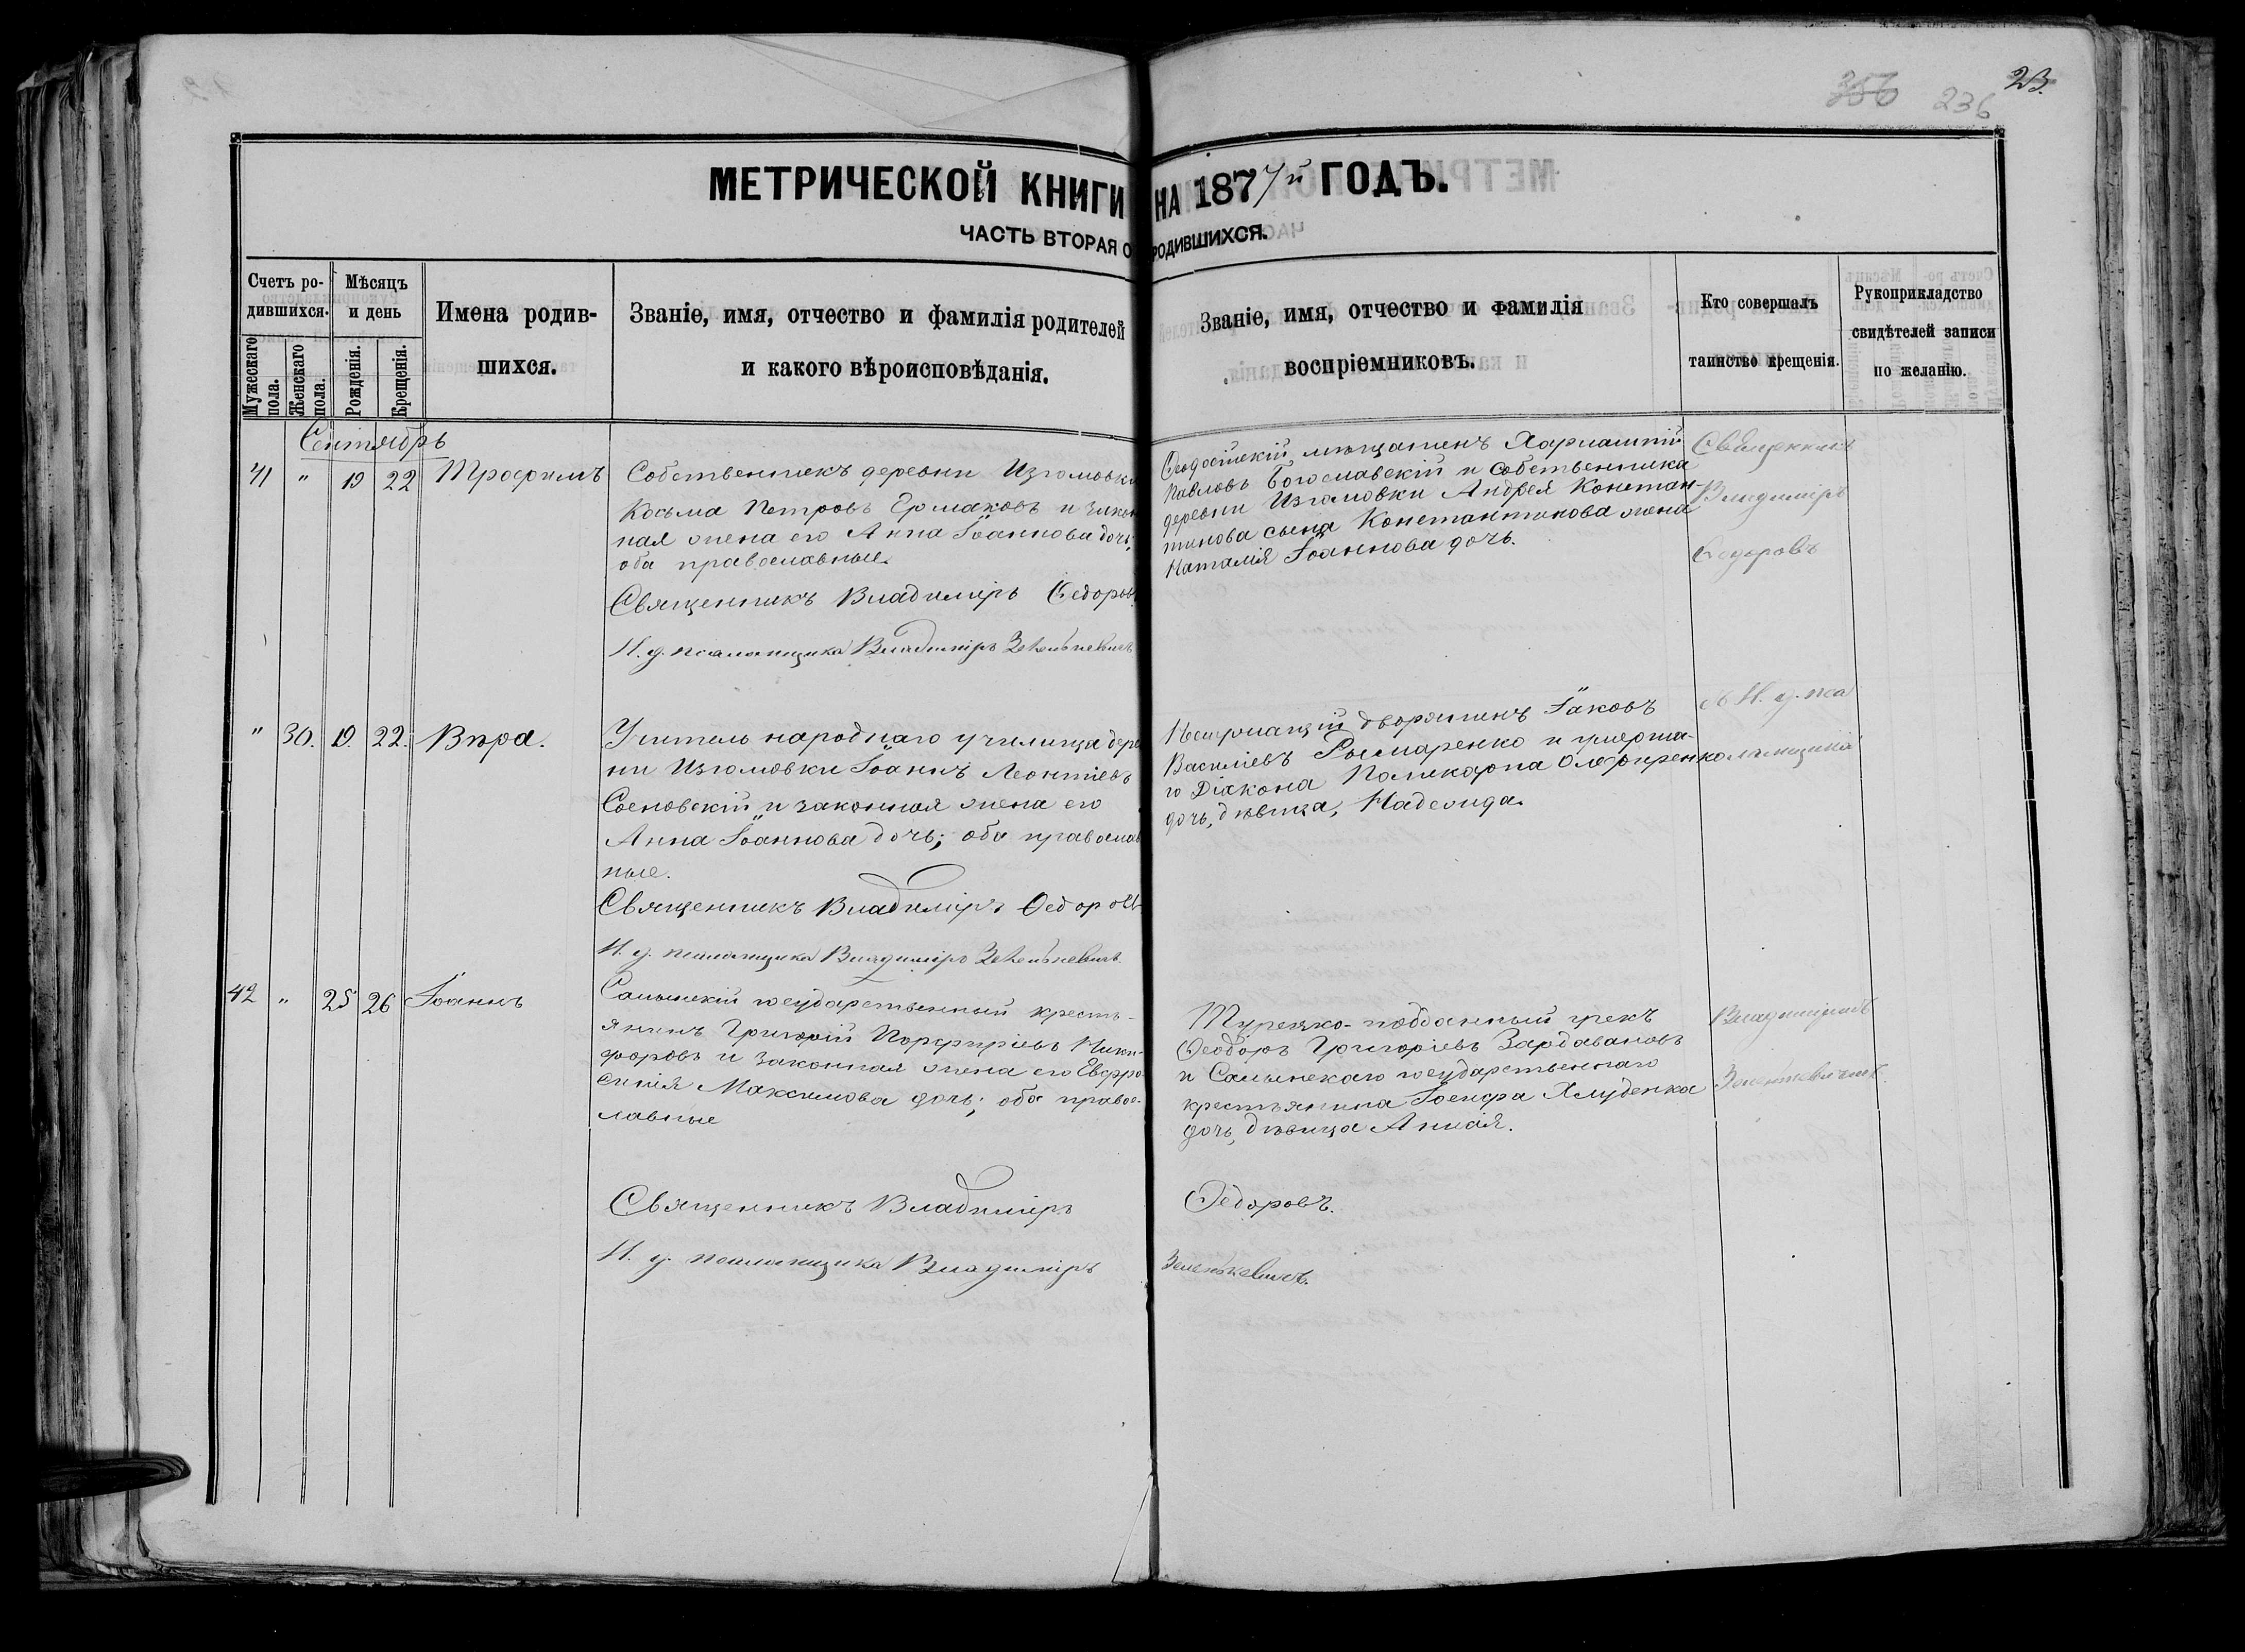 356 236 23.
МЕТРИЧЕСКОЙ КНИГИ НА 1877й ГОДЪ.
ЧАСТЬ ВТОРАЯ О РОДИВШИХСЯ.
Счетъ ро-
дившихся.
Мужескаго пола.
Женскаго пола.
Мѣсяцъ
и день
Рожденія.
Крещенія.
Имена родив-
шихся.
Званіе, имя, отчество и фамилія родителей
и какого вѣроисповѣданія.
Званіе, имя, отчество и фамилія
воспріемниковъ.
Кто совершалъ
таинство крещенія.
Рукоприкладство
свидѣтелей записи
по желанію.
Сентябрь
41 " 19 22 Трофимъ
Собственникъ деревни Изюмовки
Косьма Петровъ Ермаковъ и закон
ная жена его Анна Іоаннова дочь;
оба православные.
Священникъ Владиміръ Ѳедоровъ
И. д. псаломщика Владиміръ Зеленкевичъ
Ѳеодосійскій мѣщанинъ Харлампій
Павловъ Богославскій и собственника
деревни Изюмовки Андрея Констан-
тинова сына Константинова жена
Наталія Іоаннова дочь.
Священникъ
Владиміръ
Ѳедоровъ
" 30. 19. 22. Вѣра.
Учитель народнаго училища дерев
ни Изюмовки Іоаннъ Леонтіевъ
Сосновскій и законная жена его
Анна Іоаннова дочь; оба православ
ные.
Священникъ Владиміръ Ѳедоровъ
И. д. псаломщика Владиміръ Зеленкевичъ
дворянинъ Іаковъ
Василіевъ и умерша-
го Діакона Поликарпа Олефиренко
дочь, дѣвица, Надежда.
съ И. д. пса
ломщика
42 " 25 26 Іоаннъ
Салынскій государственный кресть-
янинъ Григорій Порфиріевъ Ники-
форовъ и законная жена его Евфро
синія Максимова дочь; оба правос-
лавные
Турецко-подданный грекъ
Ѳеодоръ Григоріевъ Зардавановъ
и Салынскаго государственнаго
крестьянина Іосифа Хлуденка
дочь, дѣвица Аннаія.
Владиміромъ
Зеленкевичемъ
Священникъ Владиміръ Ѳедоровъ.
И. д. псаломщика Владиміръ Зеленкевичъ.